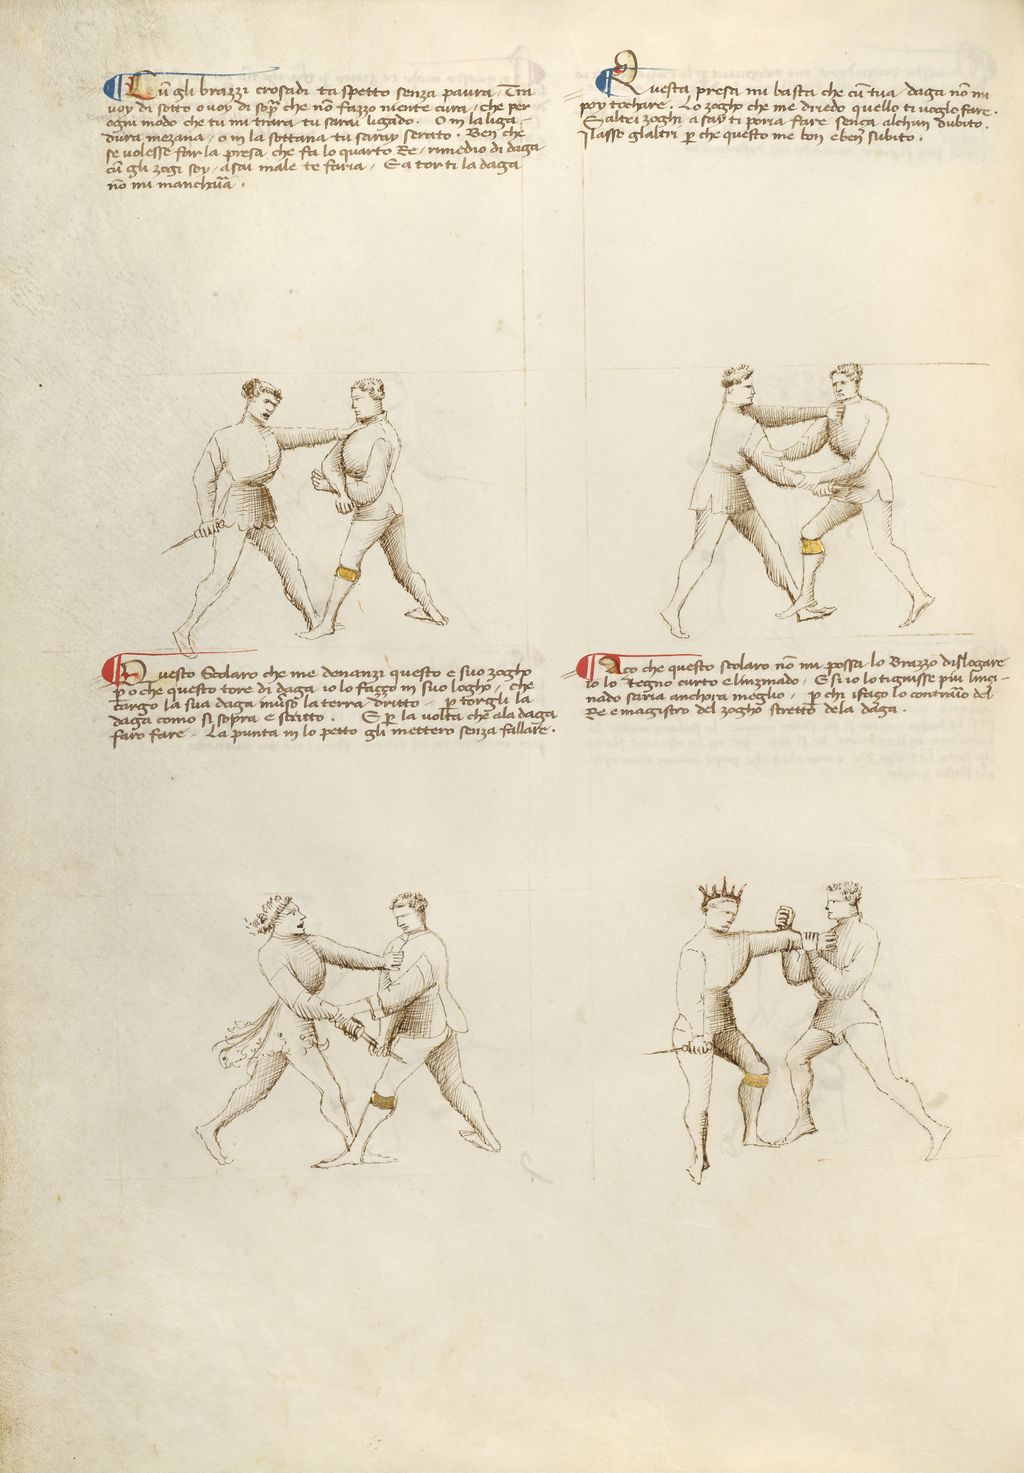 Cū gli brazzi crosadi ta spetto senza paura / Tra
voy di sotto o voy di sop̄ che nō fazzo niente cura / che per
ogni modo che tu mi trara tu sarai ligado. O in la liga-
dura mezana / o in la sottana tu saray serato. Ben che
se volesse far la presa che fa lo quarto Re / rimedio di daga
cū gli zogi soy / asai male te faria / E a tor ti la daga
nō mi mancharia.
Questa presa mi basta che cū tua daga nō mi
poy tochare. Lo zogho che me diriedo quello ti voglo fare.
E altri zoghi asay ti poria fare senza alchun dubito.
Ilasso glaltri p̱ che questo me bon e ben subito.
Questo Scolaro che me denanzi questo e suo zogho
p̱ o che questo tore di daga io lo fazzo in suo logho / che
cargo la sua daga inv̄so la terra dritto / p̱ torgli la
daga como si sop̄ra e scritto. E p̱ la volta che ala daga
faro fare / La punta in lo petto gli mettero senza fallare.
Aço che questo scolaro nō mi possa lo brazzo dislogare
io lo tegno curto e linzinado / E si io lo tignisse piu linci-
nado saria anchora meglio / p̱ chi ifaço lo contrario del
Re e magistro del zogho stretto dela daga.